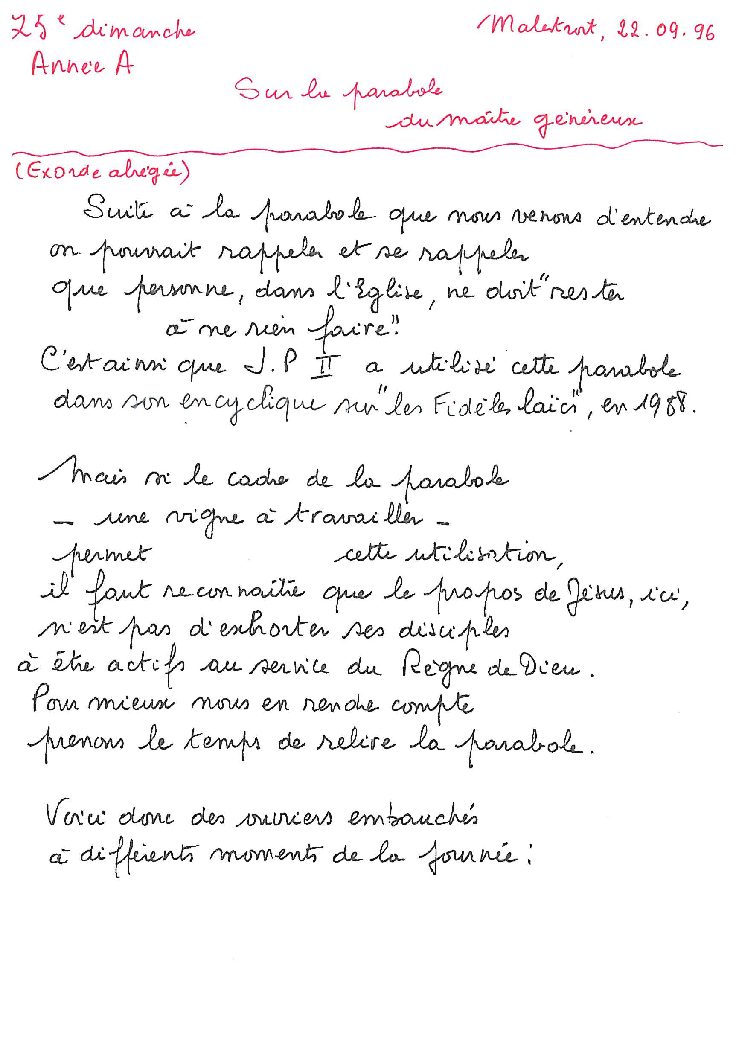 25e dimanche
Malestroit, 22.09.96
Année A
Sur la parabole
du maître généreux
(Exorde abrégée)
Suite à la parabole que nous venons d'entendre
on pourrait rappeler et se rappeler
que personne, dans l'Eglise, ne doit "rester
à ne rien faire".
C'est ainsi que J.P II a utilisé cette parabole
dans son encyclique sur "les Fidèles laïcs", en 1988.
Mais si le cadre de la parabole
- une vigne à travailler -
permet cette utilisation,
il faut reconnaître que le propos de Jésus, ici,
n'est pas d'exhorter ses disciples
à être actifs au service du Règne de Dieu.
Pour mieux nous en rendre compte
prenons le temps de relire la parabole.
Voici donc des ouvriers embauchés
à différents moments de la journée :